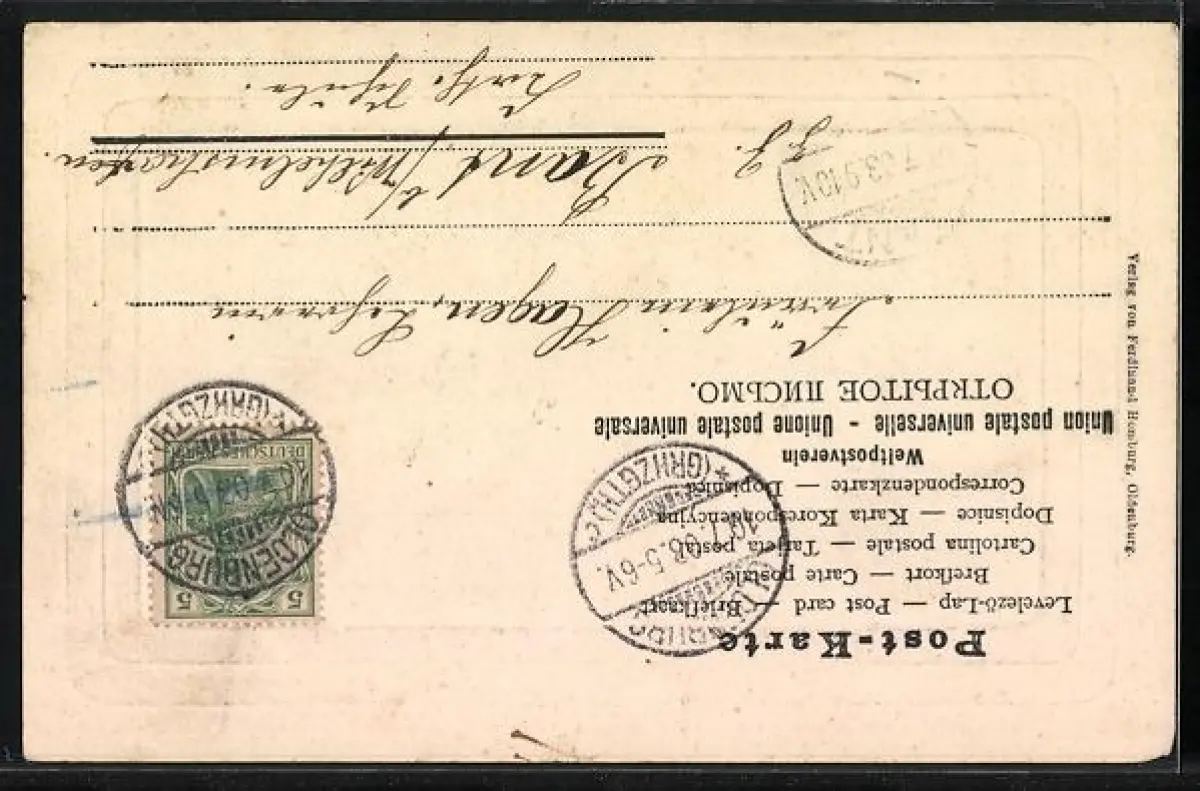 Post-Karte
Levelező-Lap — Post card — Briefkaart
Brefkort — Carte postale
Cartolina postale — Tarjeta postal
Dopisnice — Karta Korespondencyjna
Correspondenzkarte — Dopisnica
Weltpostverein
Union postale universelle - Unione postale universale
ОТКРЫТОЕ ПИСЬМО.
5 5
DEUTSCHES
OLDENBURG
*(GRHZGTH.)
*(GRHZGTH.)c
5-6V.
9.10V.
Fräulein Hagen, Lehrerin
Bant b/Wilhelmshafen.
Verlag von Ferdinand Homburg, Oldenburg.